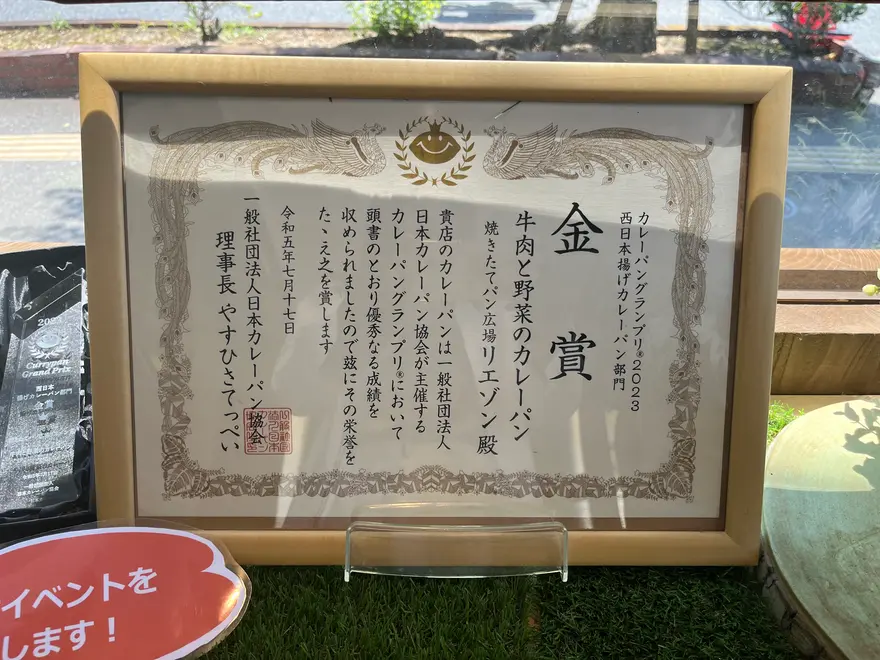 カレーパングランプリ®2023
西日本揚げカレーパン部門
金賞
牛肉と野菜のカレーパン
焼きたてパン広場 リエゾン 殿
貴店のカレーパンは一般社団法人
日本カレーパン協会が主催する
カレーパングランプリ®において
頭書のとおり優秀なる成績を
収められましたので玆にその栄誉を
たゝえ之を賞します
令和五年七月十七日
一般社団法人日本カレーパン協会
理事長 やすひさてっぺい
Currypan
Grand Prix
西日本
揚げカレーパン部門
金賞
イベントを
します！